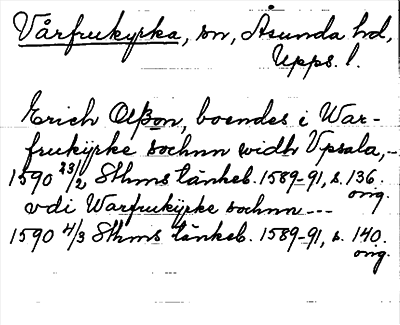 Vårfrukyrka, sn, Åsunda hd,
Upps. l.
Erich Olßon, boendes i War-
frukÿrke sochnn widh Vpsala,-
1590 23/2 Sthms tänkeb. 1589-91, s. 136.
orig.
vdi Warfrukÿrke sochnn ---
1590 4/3 Sthms tänkeb. 1589-91, s. 140.
orig.